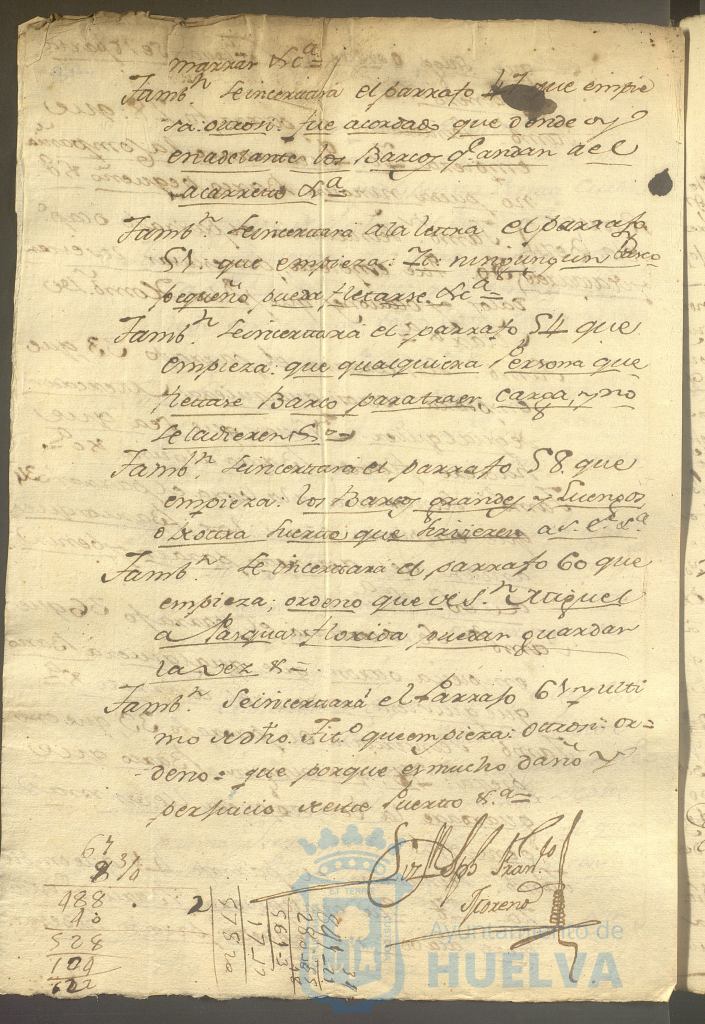 marrar &cª=
Tambⁿ. Se incertará el parrafo 47 que empie
sa: otrosi: fue acordado que donde oy
en adelante los Barcos q. andan a el
acarreto &ª
Tambⁿ. Se incertará a la letra el parrafo
51. que empieza: Yt: ningung un Barco
pequeño pueda fletarse &cª=
Tambⁿ. Se incertará el parrafo 54 que
empieza: que qualquiera Persona que
fletase Barco para traer carga, y no
se la dieren
Tambⁿ. Se incertará el parrafo 58. que
empieza: los Barcos grandes y Luengos
o de otra suerte que a S. &ª
Tambⁿ. Se incertará el parrafo 60 que
empieza; ordeno que de Sⁿ. Miguel
a Pasqua florida puedan guardar
la vez &=.
Tambⁿ. Se incertará el Parrafo 61 y ulti
mo de dho. Titº que empieza: Otrosi: or=
deno= que porque es mucho daño y
perjuicio de este Puerto &ª=
Franᶜᵒ
Moreno
67
8
488
40
528
104
622
2
Ayuntamiento de
HUELVA